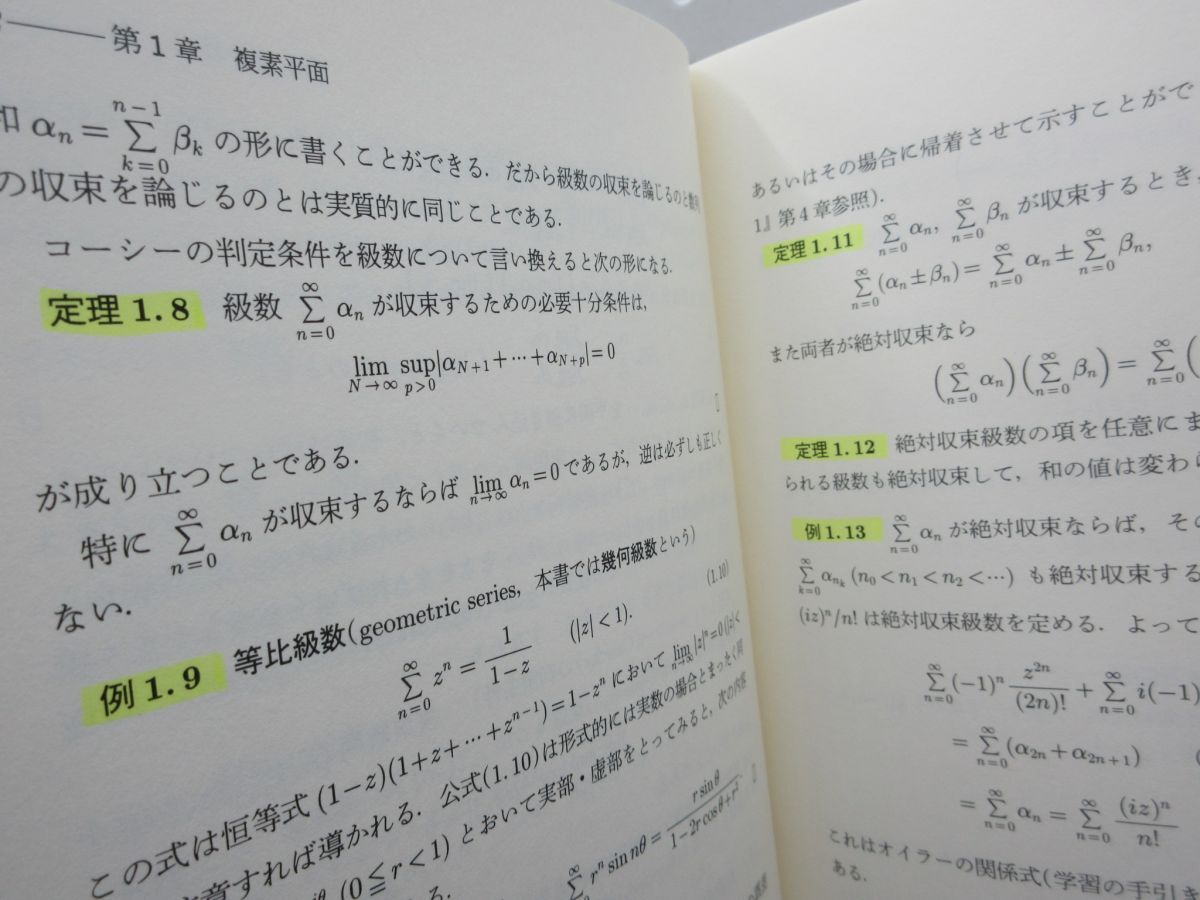 第1章 複素平面
和 αn = Σ_{k=0}^{n−1} βk の形に書くことができる. だから級数の収束を論じるのと数列
の収束を論じるのとは実質的に同じことである.
コーシーの判定条件を級数について言い換えると次の形になる.
定理1.8 級数 Σ_{n=0}^{∞} αn が収束するための必要十分条件は,
lim_{N→∞} sup_{p>0} |α_{N+1}+⋯+α_{N+p}| = 0
が成り立つことである.
特に Σ_{n=0}^{∞} αn が収束するならば lim_{n→∞} αn = 0 であるが, 逆は必ずしも正しく
ない.
例1.9 等比級数(geometric series, 本書では幾何級数という)
Σ_{n=0}^{∞} z^n = 1/(1−z) (|z|<1). (1.10)
この式は恒等式 (1−z)(1+z+⋯+z^{n−1})=1−z^n において lim_{n→∞} |z|^n=0 (|z|<
意すれば導かれる. 公式(1.10)は形式的には実数の場合とまったく同
(0≦r<1) とおいて実部・虚部をとってみると, 次の内容
る.
Σ^{∞} r^n sin nθ = r sin θ/(1−2r cos θ+r^2).
あるいはその場合に帰着させて示すことがで
1』第4章参照).
定理1.11 Σ_{n=0}^{∞} αn, Σ_{n=0}^{∞} βn が収束するとき,
Σ_{n=0}^{∞} (αn±βn) = Σ_{n=0}^{∞} αn ± Σ_{n=0}^{∞} βn,
また両者が絶対収束なら
(Σ_{n=0}^{∞} αn)(Σ_{n=0}^{∞} βn) = Σ_{n=0}^{∞} (
定理1.12 絶対収束級数の項を任意にま
られる級数も絶対収束して, 和の値は変わら
例1.13 Σ_{n=0}^{∞} αn が絶対収束ならば, その
Σ_{k=0}^{∞} α_{n_k} (n0<n1<n2<⋯) も絶対収束する
(iz)^n/n! は絶対収束級数を定める. よって
Σ_{n=0}^{∞} (−1)^n z^{2n}/(2n)! + Σ_{n=0}^{∞} i(−1)
= Σ_{n=0}^{∞} (α_{2n}+α_{2n+1}) (
= Σ_{n=0}^{∞} αn = Σ_{n=0}^{∞} (iz)^n/n!
これはオイラーの関係式(学習の手引き
ある.